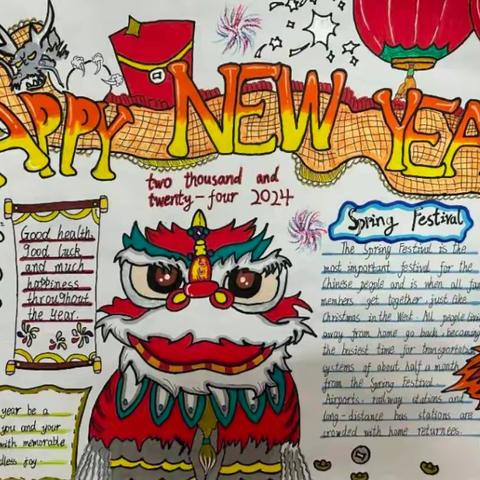 HAPPY NEW YEA
two thousand and
twenty-four 2024
Good health,
good luck
and much
happiness
throughout
the Year.
year be a
you and your
with memorable
dless joy.
Spring Festival
The Spring Festival is the
most important festival for the
Chinese people and is when all fa
members get together, just like
Christmas in the West. All people livi
away from home go back, becoming
the busiest time for transportation
systems of about half a month
from the Spring Festival.
Airports, railway stations and
long-distance bus stations are
crowded with home returnees.